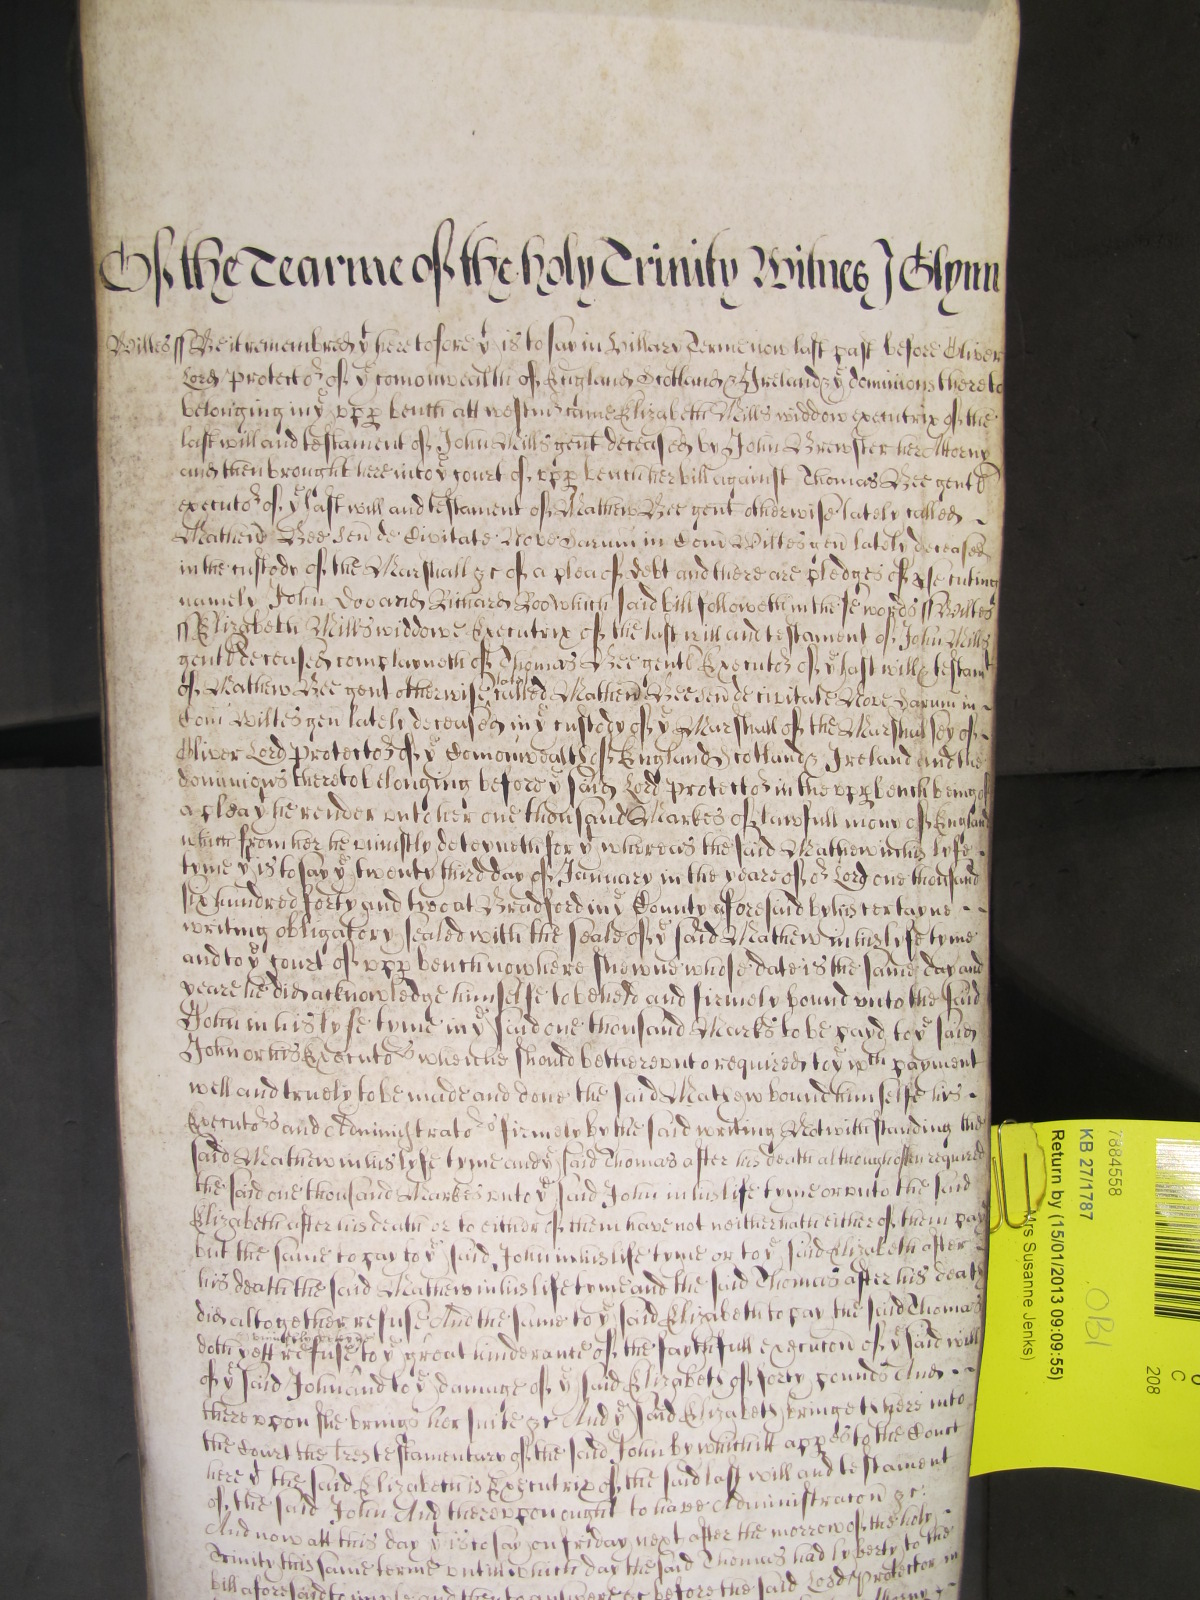 Of the Tearme of the holy Trinity Witnes J Glynn
Wiltes ss Be it remembred yt heretofore yt is to say in Hillary Terme now last past before Oliver
Lord Protector of ye comonwealth of England Scotland & Ireland & ye dominions thereto
belonging in ye upp bench att westmr came Elizabeth Mills widdow executrix of the
last will and testament of John Mills gent deceased by John Brewster her Attorny
and then brought here into ye court of upp bench her bill against Thomas Bee gent
executor of ye last will and testament of Mathew Bee gent otherwise lately called
Mathew Bee sen de Civitate Nove Sarum in Com Wiltes gen lately deceased
in the custody of the Marshall &c of a plea of debt and there are pledges of psecuting
namely John Doo and Richard Roo which said bill followeth in these words ss Wiltes
ss Elizabeth Mills widdowe Executrix of the last will and testament of John Mills
gent deceased complayneth of Thomas Bee gent Executor of ye last will & testamt
of Mathew Bee gent otherwise lately called Mathew Bee sen de civitate Nove Sarum in
Com Wiltes gen lately deceased in ye custody of ye Marshall of the Marshalsey of
Oliver Lord Protector of ye Comonwealth of England Scotland & Ireland and the
dominions thereto belonging before ye said Lord Protector in the upp bench being of
a plea yt he render unto her one thousand Markes of lawfull mony of England
which from her he uniustly deteyneth for yt whereas the said Mathew in his lyfe
tyme yt is to say ye twenty third day of January in the yeare of or Lord one thousand
six hundred forty and two at Bradford in ye County aforesaid by his certayne
writing obligatory sealed with the seale of ye said Mathew in his lyfe tyme
and to ye court of upp bench now here shewne whose date is the same day and
yeare he did acknowledge himselfe to be held and firmely bound unto the said
John in his lyfe tyme in ye said one thousand Marks to be payd to ye said
John or his Executors when he should be thereunto required to ye wch payment
well and truely to be made and done the said Mathew bound himselfe his
Executors and Administrators firmely by the said writing Notwithstanding the
said Mathew in his lyfe tyme and ye said Thomas after his death although often required
the said one thousand Markes unto ye said John in his life tyme or unto the said
Elizabeth after his death or to either of them have not neither hath either of them payd
but the same to pay to ye said John in his life tyme or to ye said Elizabeth after
his death the said Mathew in his life tyme and the said Thomas after his death
did altogether refuse And the same to ye said Elizabeth to pay the said Thomas
doth yett refuse to ye great hinderance of the faythfull execucon of ye said will
of ye said John and to ye damage of ye said Elizabeth of forty pounds And
thereupon she brings her suite &c And ye said Elizabeth bringeth here into
the Court the lres testamentary of the said John by which itt appes to the Court
here yt the said Elizabeth is Executrix of the said last will and testament
of the said John And thereupon ought to have Administracon &c
And now att this day yt is to say on friday next after the morrow of the holy
Trinity this same terme untill which day the said Thomas had lyberty to the
bill aforesaid to imple and then to answere &c before the said Lord Protector
7884558
KB 27/1787
Return by (15/01/2013 09:09:55)
Mrs Susanne Jenks)
OBI
C
208